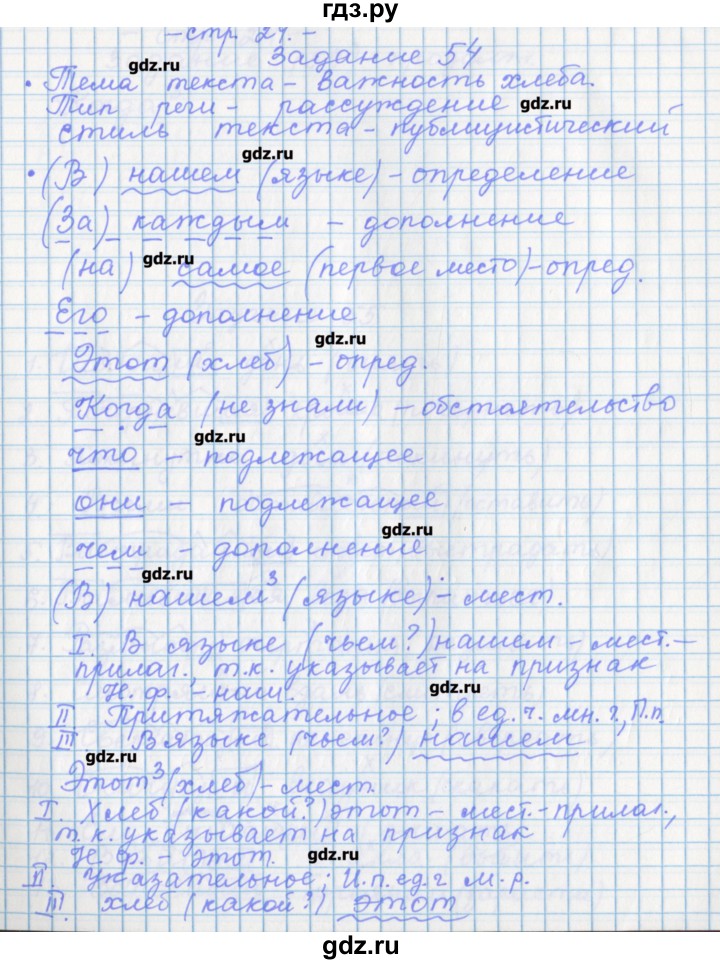 гдз.ру
- стр. 24. -
gdz.ru
Задание 54
• Тема текста - важность хлеба.
Тип речи - рассуждение gdz.ru
стиль текста - публицистический
gdz.ru
• (В) нашем (языке) - определение
(За) каждым - дополнение
(на) gdz.ru самое (первое место) - опред.
Его - дополнение
gdz.ru
Этот (хлеб) - опред.
Когда (не знали) - обстоятельство
gdz.ru
что - подлежащее
они - подлежащее
gdz.ru
чем - дополнение
gdz.ru
(В) нашем³ (языке) - мест.
I. В языке (чьем?) нашем - мест.-
прилаг., т.к. указывает на признак
Н.ф. - наш. gdz.ru
II Притяжательное; в ед.ч. мн.г., П.п.
III В языке (чьем?) нашем
gdz.ru
Этот³ (хлеб) - мест.
I. Хлеб (какой?) этот - мест.-прилаг.,
т.к. указывает на признак
Н.ф. - этот. gdz.ru
II. Указательное; И.п. ед.г м.р.
III. хлеб (какой?) этот
gdz.ru
gdz.ru